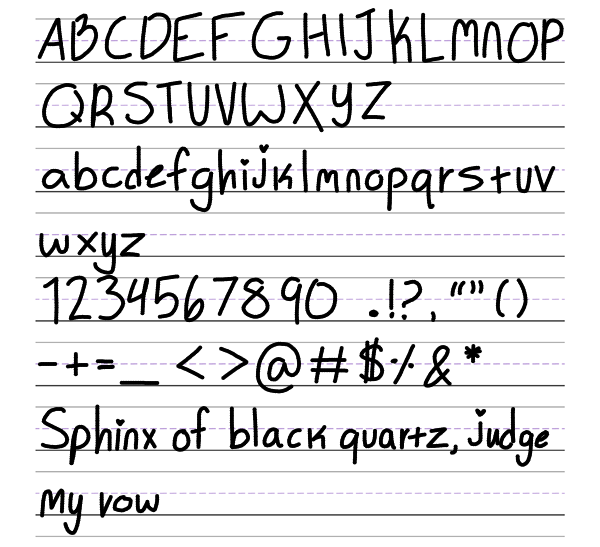 ABCDEFGHIJKLMNOP
QRSTUVWXYZ
abcdefghijklmnopqrstuv
wxyz
1234567890 .!?, “” ()
-+=_ <>@#$%&*
Sphinx of black quartz, judge
my vow